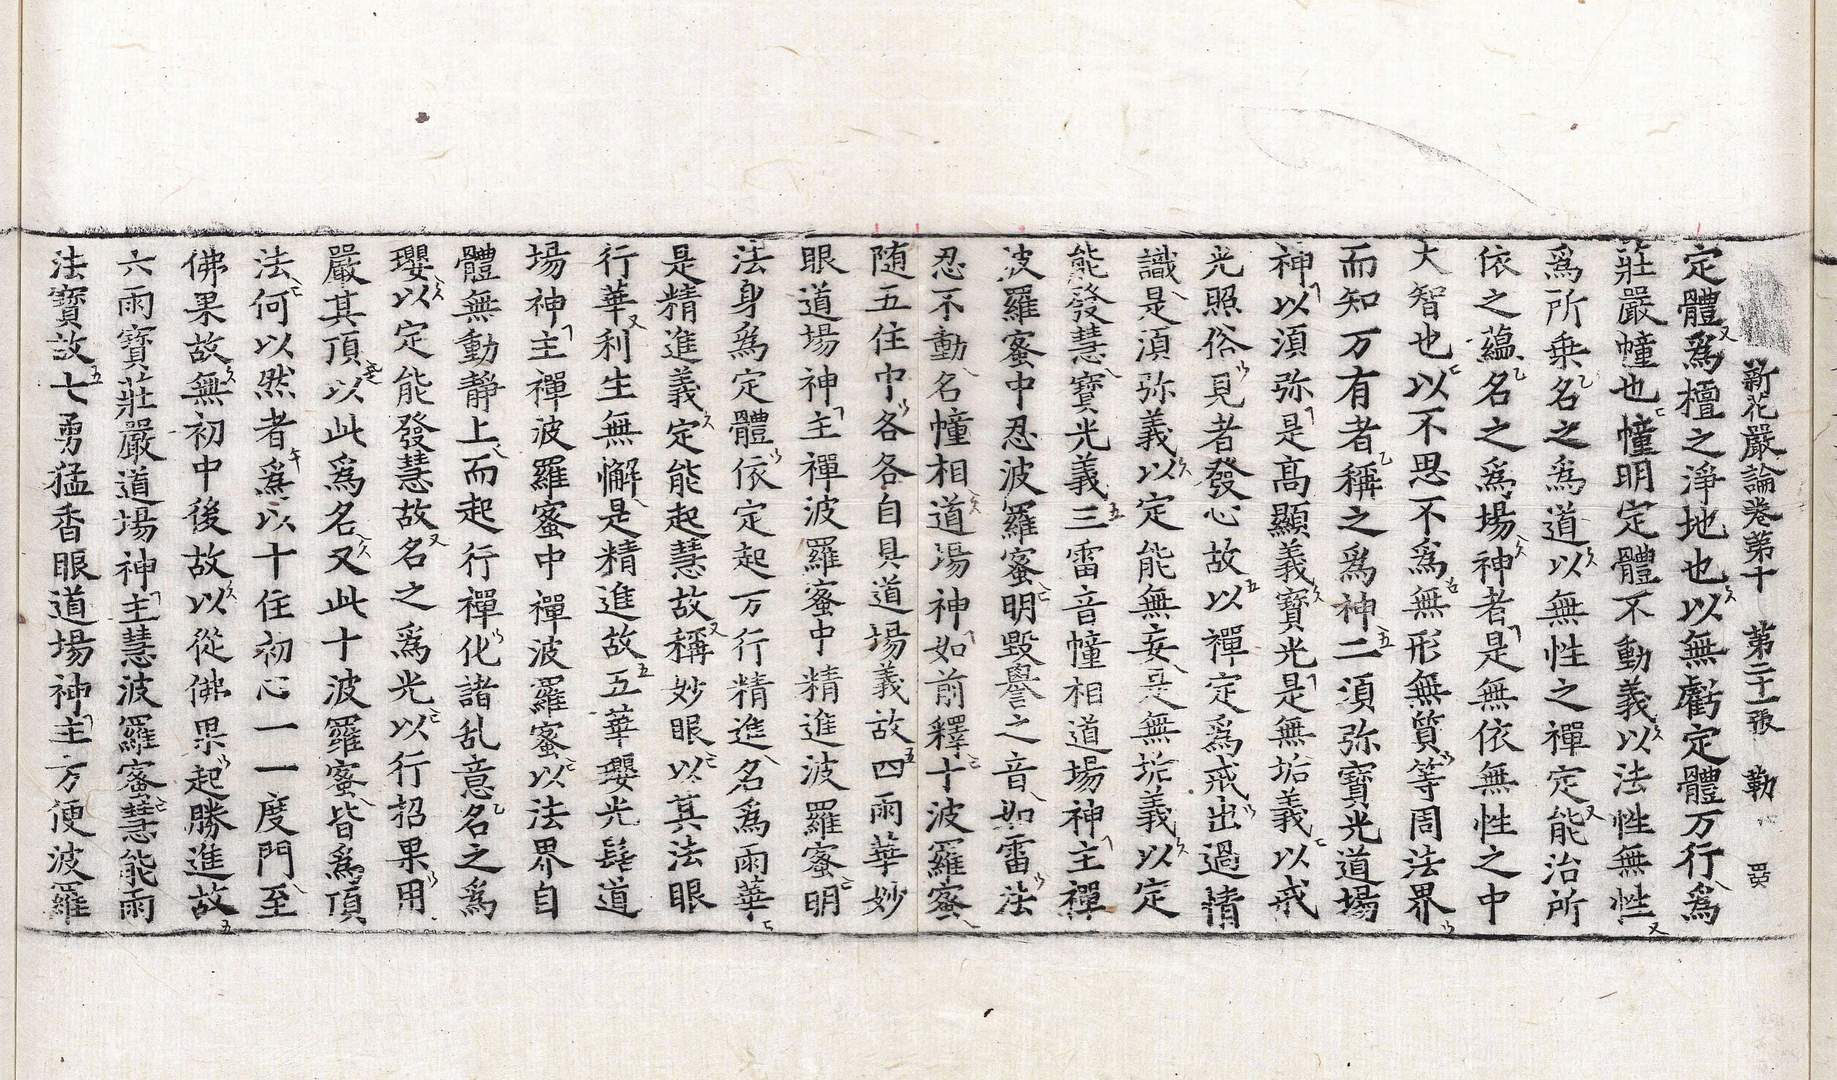 新花嚴論卷第十　第二十一張　勒　冥
定體爲檀之淨地也以無虧定體万行爲
莊嚴幢也幢明定體不動義以法性無性
爲所乗名之爲道以無性之禪定能治所
依之蘊名之爲場神者是無依無性之中
大智也以不思不爲無形無質等周法界
而知万有者稱之爲神二須弥寶光道場
神以須弥是髙顯義寶光是無垢義以戒
光照俗見者發心故以禪定爲戒出過情
識是須弥義以定能無妄是無垢義以定
能發慧寶光義三雷音幢相道場神主禪
波羅蜜中忍波羅蜜明毀譽之音如雷法
忍不動名幢相道場神如前釋十波羅蜜
随五住中各各自具道場義故四雨華妙
眼道場神主禪波羅蜜中精進波羅蜜明
法身爲定體依定起万行精進名爲雨華
是精進義定能起慧故稱妙眼以其法眼
行華利生無懈是精進故五華瓔光髻道
場神主禪波羅蜜中禪波羅蜜以法界自
體無動靜上而起行禪化諸乱意名之爲
瓔以定能發慧故名之爲光以行招果用
嚴其頂以此爲名又此十波羅蜜皆爲頂
法何以然者爲以十住初心一一度門至
佛果故無初中後故以從佛果起勝進故
六雨寶莊嚴道場神主慧波羅蜜慧能雨
法寶故七勇猛香眼道場神主方便波羅